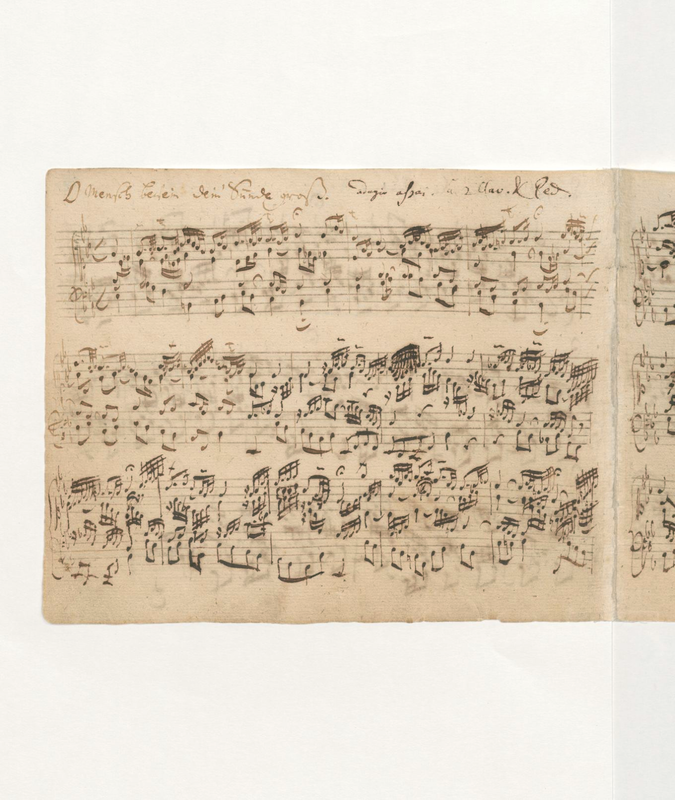 O Mensch bewein dein Sünde groß. adagio assai. à 2 Clav. & Ped.